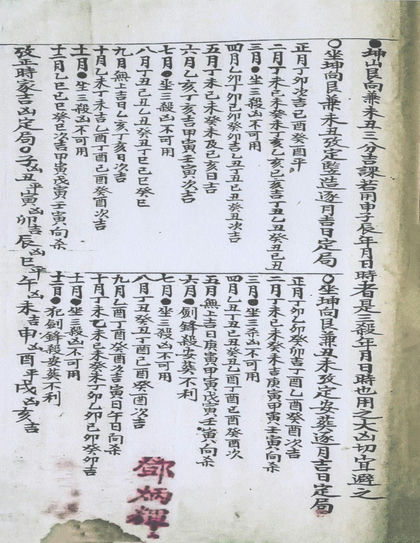 ●坤山艮向兼未丑三分吉課若用申子辰年月日時者是三殺年月日時也用之大凶切宜避之
○坐坤向艮兼未丑攷定豎造逐月吉日定局
正月丁卯次吉己酉癸酉平
二月丁未己未癸未丁亥乙亥己亥吉丁丑乙丑癸丑己丑
三月●坐三殺不可用
四月乙卯丁卯癸卯吉乙丑丁丑己丑癸丑次吉
五月丁未己未癸未及己亥日吉
六月乙亥丁亥吉甲寅壬寅次吉
七月●坐三殺不可用
八月丁丑己丑乙丑癸丑丁巳己巳癸巳
九月無上吉日乙亥丁亥日次吉
十月乙未丁未吉乙酉丁酉己酉癸酉次吉
十一月●坐三殺不可用
十二月乙巳己巳癸巳次吉甲寅戊寅壬寅向杀
○坐坤向艮兼丑未攷定安葬逐月吉日定局
正月丁卯乙卯癸卯吉丁酉乙酉癸酉己酉次吉
二月丁未己未癸未吉庚寅甲寅壬寅向杀
三月●坐三杀不可用
四月乙丑丁丑己丑癸丑吉乙酉丁酉己酉癸酉次
五月無上吉日庚寅甲寅戊寅壬寅向杀
六月●劍鋒殺安葬不利
七月●坐三殺不可用
八月丁丑癸丑乙丑丁酉己酉癸酉次吉
九月乙酉丁酉癸酉次吉寅日午日向杀
十月丁未乙未己未癸未丁卯乙卯己卯癸卯吉
十一月●坐三殺不可用
十二月●犯劍鋒殺安葬不利
攷正時家吉凶定局○子凶丑平寅凶卯吉辰凶巳平午凶未吉申凶酉平戌凶亥吉
鄧炳禪